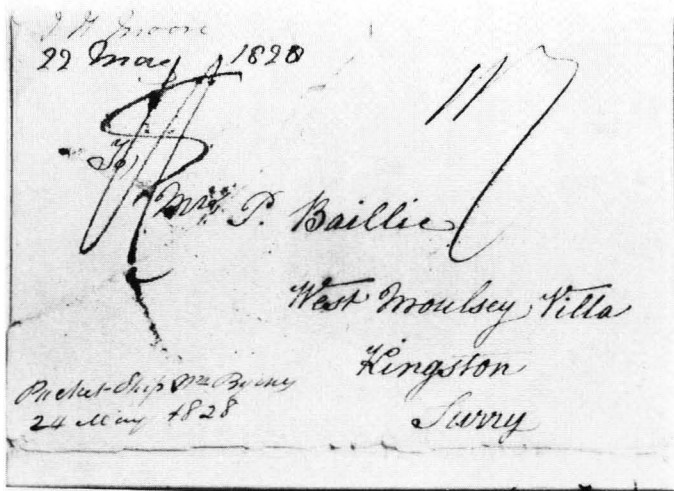 J H Moore
22 May 1828
To
Mrs P. Baillie
West Moulsey Villa
Kingston
Surry
Packet Ship Wm Byrny
24 May 1828